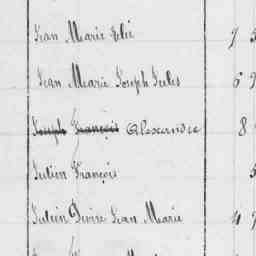 Jean Marie Elie 7
Jean Marie Joseph Jules 6 9
Joseph François Alexandre 8
Julien François
Julien Désiré Jean Marie 4 9